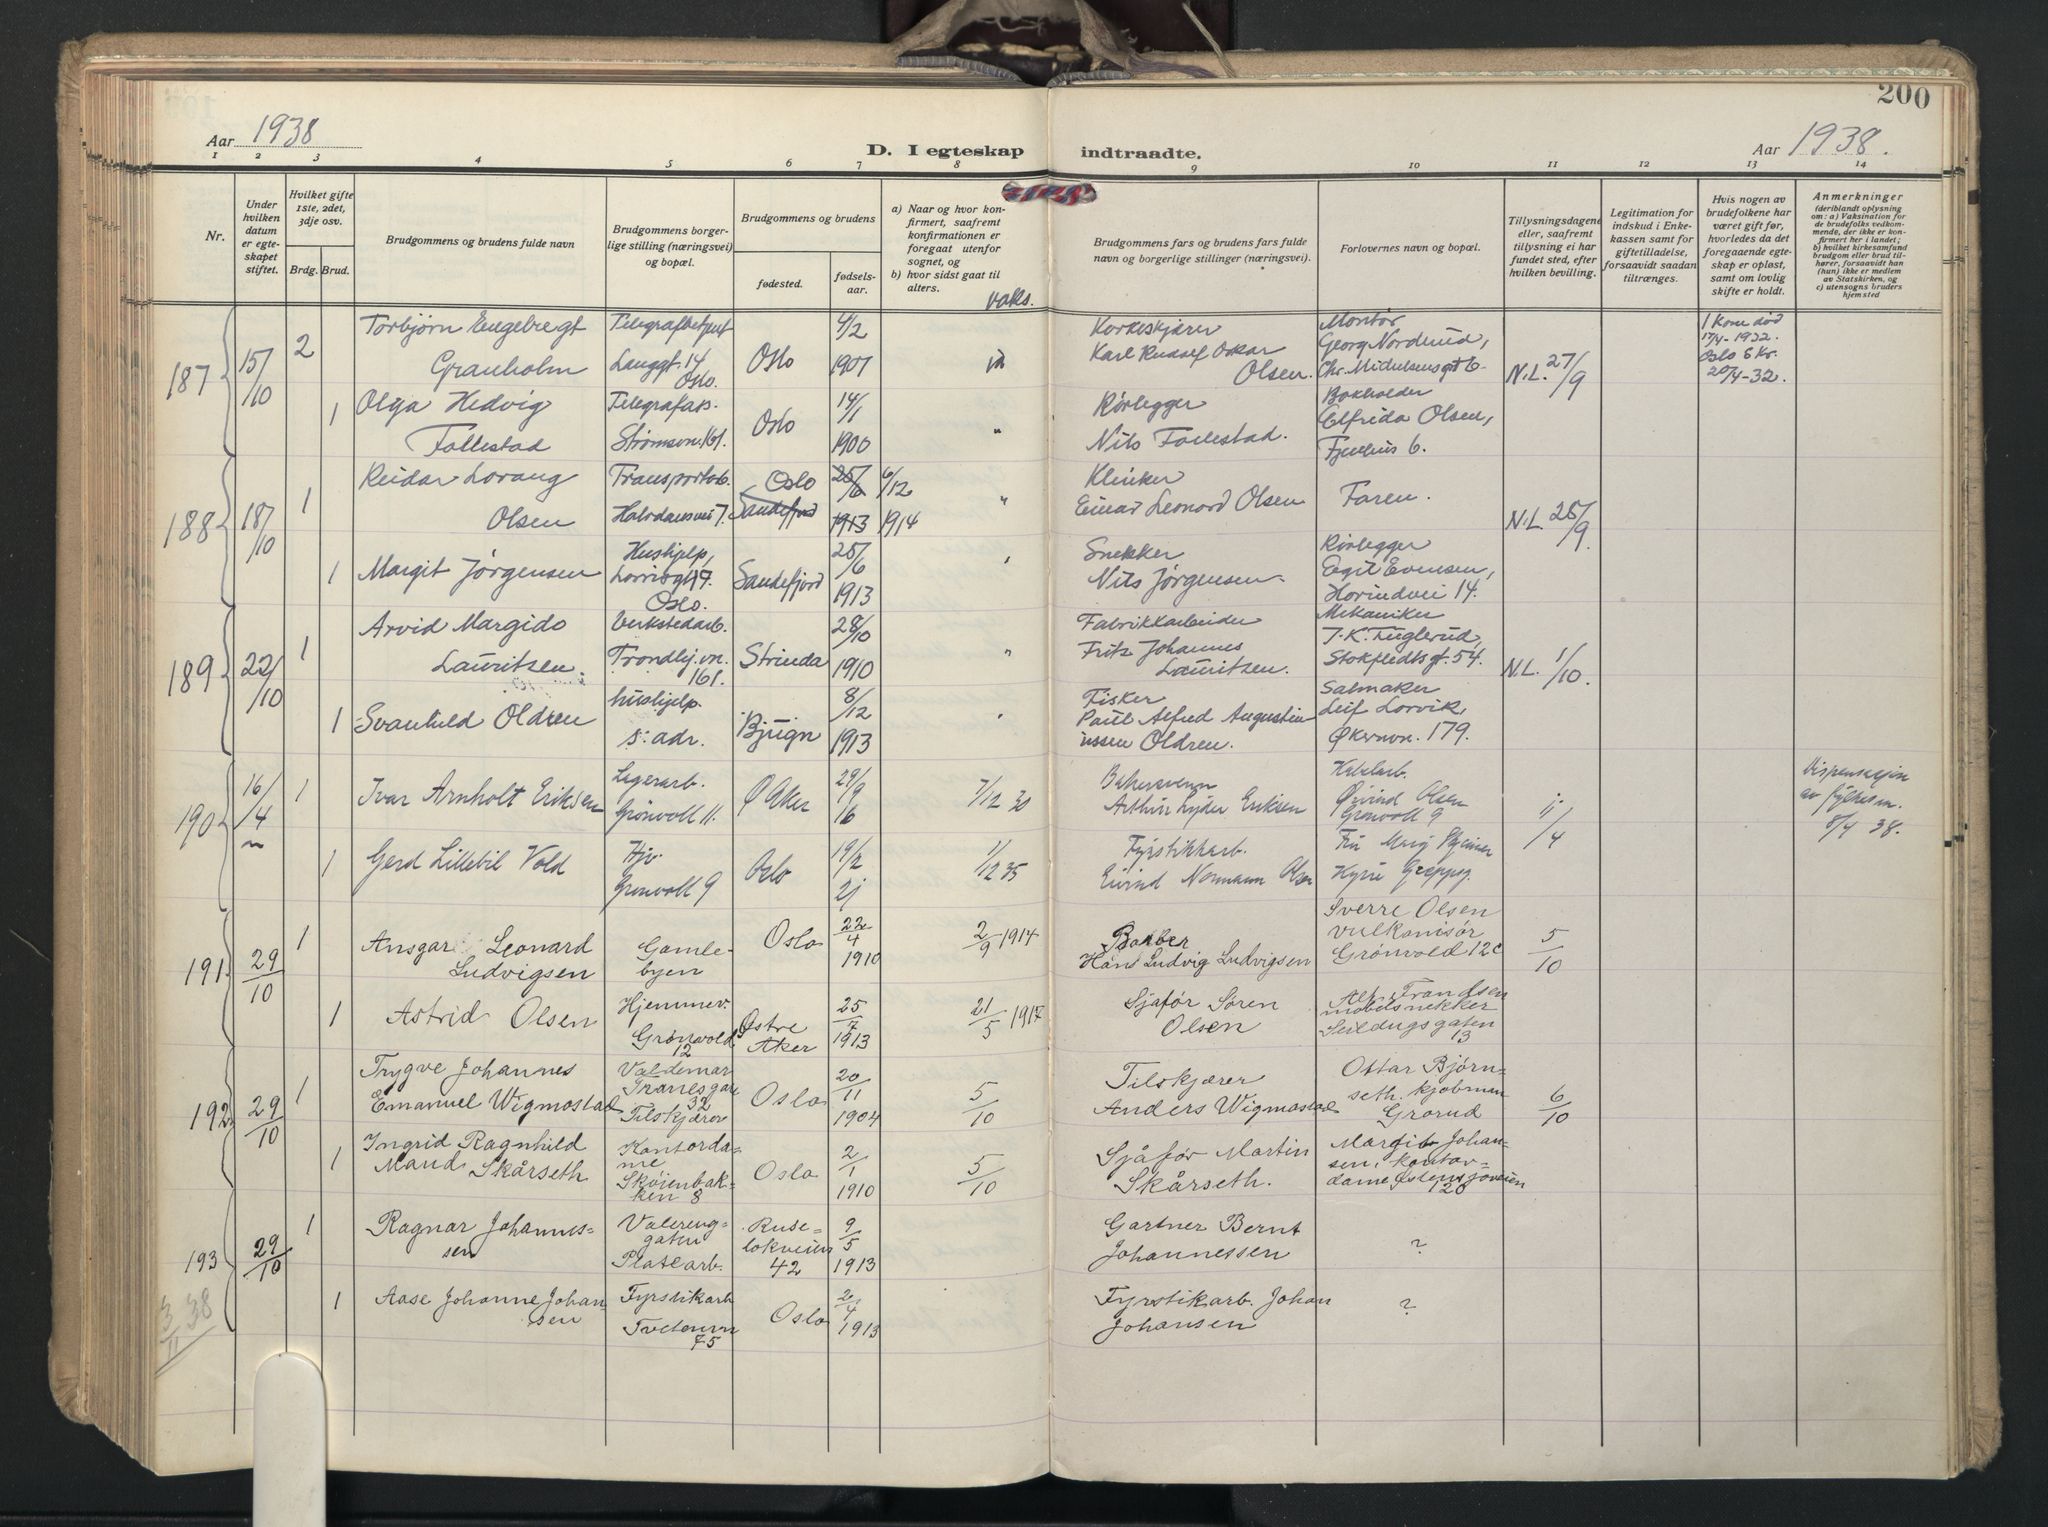 200
Aar 1938
D. I egteskap
indtraadte.
Aar 1938.
1 2 3 4 5 6 7 8 9 10 11 12 13 14
Nr.
Under hvilken datum er egteskapet stiftet.
Hvilket gifte 1ste, 2det, 3dje osv.
Brdg. Brud.
Brudgommens og brudens fulde navn
Brudgommens borgerlige stilling (næringsvei) og bopæl.
Brudgommens og brudens
fødested.
fødselsaar.
a) Naar og hvor konfirmert, saafremt konfirmationen er foregaat utenfor sognet, og
b) hvor sidst gaat til alters.
vaks.
Brudgommens fars og brudens fars fulde navn og borgerlige stillinger (næringsvei).
Forlovernes navn og bopæl.
Tillysningsdagene eller, saafremt tillysning ei har fundet sted, efter hvilken bevilling.
Legitimation for indskud i Enkekassen samt for giftetilladelse, forsaavidt saadan tiltrænges.
Hvis nogen av brudefolkene har været gift før, hvorledes da det foregaaende egteskap er opløst, samt om lovlig skifte er holdt.
Anmerkninger
(deriblandt oplysning om: a) Vaksination for de brudefolks vedkommende, der ikke er konfirmert her i landet; b) hvilket kirkesamfund brudgom eller brud tilhører, forsaavidt han (hun) ikke er medlem av Statskirken, og c) utensogns bruders hjemsted
187 15/10 2 Torbjørn Engebregt Granholm
Langgt. 14 Oslo. Oslo 4/2 1907
Karl Rudolf Oskar Olsen.
Montør Georg Norderud,
N.L. 27/9
1 Kone død 17/4-1932. Oslo S Kr. 20/4-32.
1 Olga Hedvig Follestad
Telegrafass. Strømsvn. 161. Oslo 14/1 1900 "
Rørlegger Nils Follestad.
Bokholder Elfrida Olsen,
188 18/10 1 Reidar Lorang Olsen
Transportarb. Halvdansvei 7. Oslo Sandefjord 25/6 1913 6/12 1914 "
Klinker Einar Leonard Olsen
Faren.
N.L. 28/9
1 Margit Jørgensen
Hushjelp, Oslo. Sandefjord 25/6 1913
Snekker Nils Jørgensen.
Rørlegger Egil Evensen, 14.
189 22/10 1 Arvid Margido Lauritsen.
Verkstedarb. Trondhj.vn. 161. Strinda 28/10 1910 "
Fabrikkarbeider Fritz Johannes Lauritsen.
Mekaniker J.K. Fuglerud, Stokfledtsgt. 54.
N.L. 1/10.
1 Svanhild Oldren
hushjelp. s. adr. Bjugn 8/12 1913
Fisker Paul Alfred Augustinussen Oldren.
Salmaker Leif Lorvik, Økernvn. 179.
190 16/4 1 Ivar Arnholt Eriksen
Lagerarb. Grønvoll 11. Ø Aker 29/9 16 7/12 30
Bakersvenn Arthur Lyder Eriksen
Øivind Olsen Grønvoll 9
/4
Dispensasjon av fylkesm. 8/4 38.
1 Gerd Lillebil Vold
Hjv. Grønvoll 9 Oslo 19/2 21 1/12 35
Fyrstikkarb. Eivind Normann Olsen
191 29/10 1 Ansgar Leonard Ludvigsen
Gamlebyen Oslo 22/4 1910 2/9 1914
Barber Hans Ludvig Ludvigsen
Sverre Olsen vulkanisør Grønvold 12c
5/10
1 Astrid Olsen
Hjemmev. Grønvold 12 Østre Aker 25/7 1913 21/5 1917
Sjafør Søren Olsen
Alf. Frandsen møbelsnekker Seildugsgaten 13
192 29/10 1 Trygve Johannes Emanuel Wigmostad
Valdemar Tranesgate 32 Tilskjærer Oslo 20/11 1904 5/10
Tilskjærer Anders Wigmostad
Ottar Bjørnseth, kjøbman Grorud
6/10
1 Ingrid Ragnhild Maud Skårseth
Kontordame Skøienbakken 8 Oslo 2/1 1910 5/10
Sjåfør Martin Skårseth.
Margit Johansen, kontordame Østensjøveien 120
193 29/10 1 Ragnar Johannessen
Valerenggaten Platearb. Ruseløkveien 42 9/5 1913
Gartner Bernt Johannessen
?
1 Aase Johanne Johansen
Fyrstikarb Tvetenvn 75 Oslo 2/4 1913
Fyrstikarb. Johan Johansen
?
3/11 38